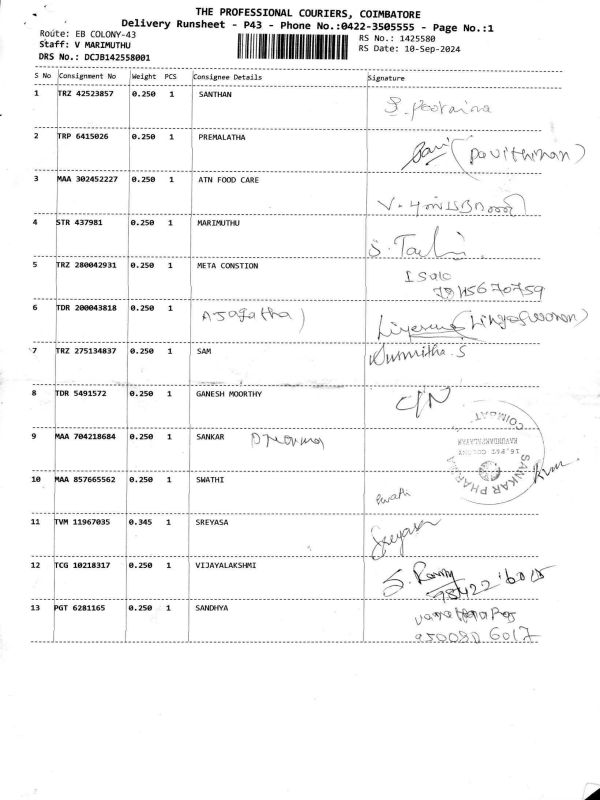 THE PROFESSIONAL COURIERS, COIMBATORE
Delivery Runsheet - P43 - Phone No.:0422-3505555 - Page No.:1
Route: EB COLONY-43
RS No.: 1425580
Staff: V MARIMUTHU
RS Date: 10-Sep-2024
DRS No.: DCJB142558001
S No Consignment No Weight PCS Consignee Details Signature
1 TRZ 42523857 0.250 1 SANTHAN
2 TRP 6415026 0.250 1 PREMALATHA
3 MAA 302452227 0.250 1 ATN FOOD CARE
4 STR 437981 0.250 1 MARIMUTHU
5 TRZ 280042931 0.250 1 META CONSTION
6 TDR 200043818 0.250 1
7 TRZ 275134837 0.250 1 SAM Sumitha.S
8 TDR 5491572 0.250 1 GANESH MOORTHY C/N
9 MAA 704218684 0.250 1 SANKAR
SANKAR PHARMA
COIMBAT
10 MAA 857665562 0.250 1 SWATHI
11 TVM 11967035 0.345 1 SREYASA Sreyasa
12 TCG 10218317 0.250 1 VIJAYALAKSHMI
13 PGT 6281165 0.250 1 SANDHYA